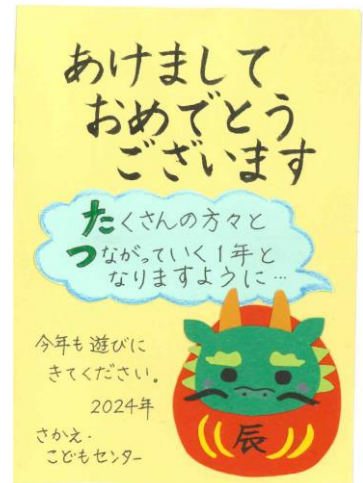 あけまして
おめでとう
ございます
たくさんの方々と
つながっていく1年と
なりますように…
今年も遊びに
きてください。
2024年
さかえ・
こどもセンター
辰